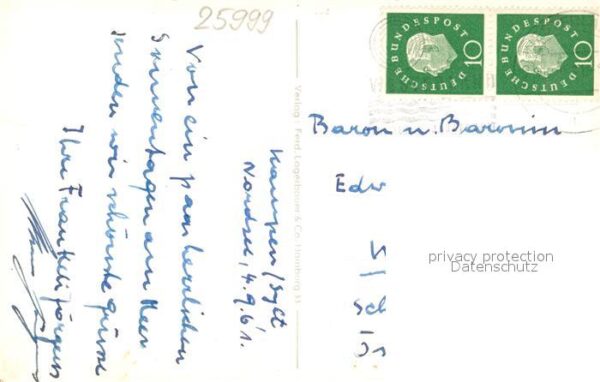 25999
Kampen/Sylt
Nordsee, 4.9.61.
Von ein paar herrlichen
Sonnentagen am Meer
senden wir schönste Grüsse
Ihre
Verlag: Ferd. Lagerbauer & Co. Hamburg
DEUTSCHE BUNDESPOST
10
DEUTSCHE BUNDESPOST
10
Baron u. Baronin
Edw
Sch
privacy protection
Datenschutz